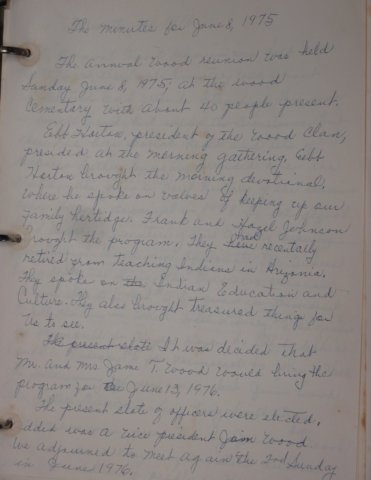 The minutes for June 8, 1975
The annual Wood reunion was held
Sunday June 8, 1975, at the wood
Cementary with about 40 people present.
Ebb Horton, president of the Wood Clan,
presided at the morning gathering. Cebb
Horton brought the morning devotional.
Where he spoke on valves of keeping up our
family hertidge. Frank and Hazel Johnson
brought the program. They had recentaily
retired from teaching Indians in Arizonia.
They spoke on the Indian Education and
Culture. They also brought treasured things for
us to see.
The present slate It was decided that
Mr. and Mrs Jame T. Wood would bring the
program for the June 13, 1976.
The present slate of officers were elected.
added was a vice president Jam Wood
We adjourned to meet again the 2nd Sunday
in June 1976.